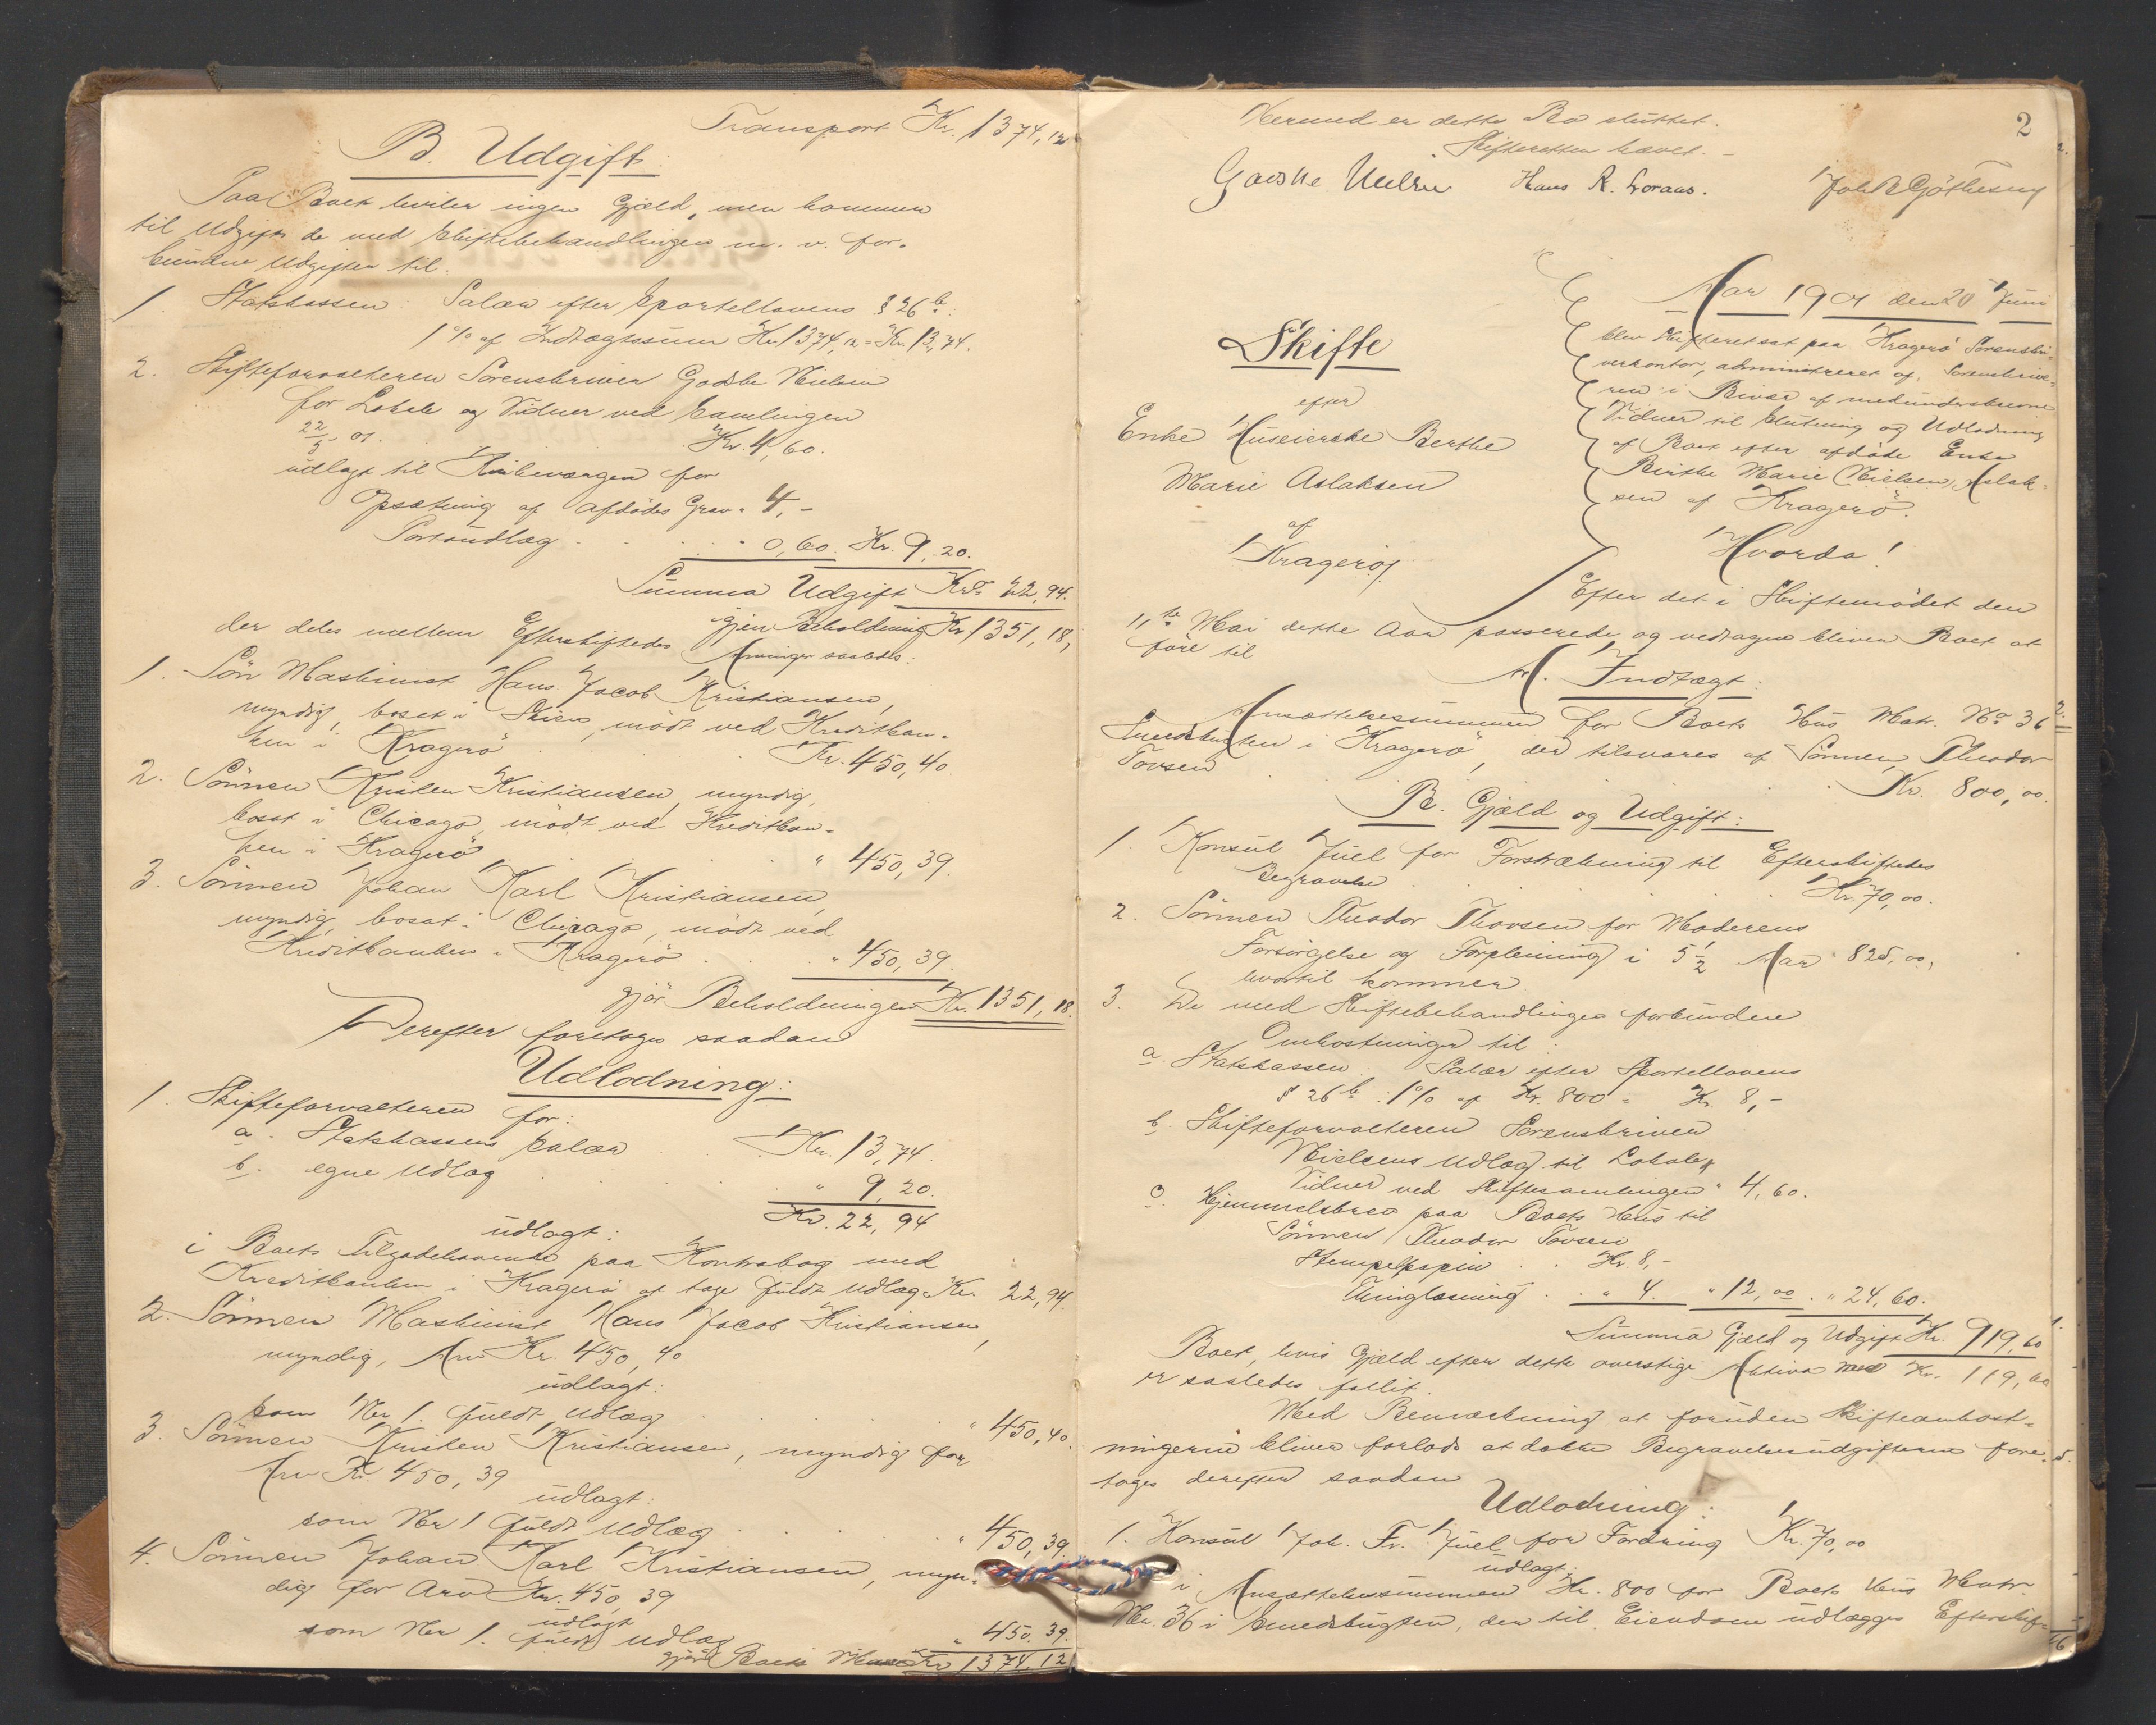 Transport Kr. 1374,12
B. Udgift.
Paa Boet hviler ingen Gjæld, men kommer
til Udgift de med Skiftebehandlingen m. v. for-
bundne Udgifter til.
1. Statskassen. Salær efter Sportellovens § 26 b.
1 % af Indtægtssum Kr 1374,12 = Kr. 13,74.
2. Skifteforvalteren Sorenskriver Godske Nielsen
for Lokale og Vidner ved Samlingen
22/5 01. Kr. 4,60.
udlagt til Kirkeværgen for
Opsætning af afdödes Grav " 4,-
Portoudlæg . . . " 0,60. Kr. 9,20.
Summa Udgift Kr. 22,94.
igjen Beholdning Kr 1351,18,
der deles mellem Efterskiftedes Arvinger saaledes:
1. Sön Maskinist Hans Jacob Kristiansen,
myndig, bosat i Skien, mödt ved Kreditban-
ken i Kragerö . . Kr. 450,40.
2. Sönnen Kristen Kristiansen, myndig,
bosat i Chicago, mödt ved Kreditban-
ken i Kragerö . . " 450,39.
3. Sönnen Johan Karl Kristiansen,
myndig, bosat i Chicago, mödt ved
Kreditbanken i Kragerö . . " 450,39.
gjör Beholdningen Kr. 1351,18.
Derefter foretages saadan
Udlodning:
1. Skifteforvalteren for:
a. Statskassens Salær . . Kr. 13,74.
b. egne Udlæg . . " 9,20.
Kr. 22,94
udlagt:
i Boets Tilgodehavende paa Kontrabog med
Kreditbanken i Kragerö at tage fuldt Udlæg Kr. 22,94.
2. Sönnen Maskinist Hans Jacob Kristiansen,
myndig, Arv Kr. 450,40
udlagt:
som Nr 1. fuldt Udlæg . . " 450,40.
3. Sönnen Kristen Kristiansen, myndig for
Arv Kr. 450,39
udlagt:
som Nr 1 fuldt Udlæg . . " 450,39.
4. Sönnen Johan Karl Kristiansen, myn-
dig for Arv Kr. 450,39
udlagt
som Nr 1. fuldt Udlæg " 450,39.
gjör Boets Masse Kr 1374,12
2
Hermed er dette Bo sluttet.
Skifteretten hævet.-
Godske Nielsen Hans R. Joh
Skifte
efter
Enke Huseierske Berthe
Marie Aslaksen
af
Kragerö
Aar 1901 den 20 Juni
blev Skifteret sat paa Kragerö Sorenskri-
verkontor, administreret af Sorenskrive-
ren i Bivær af medunderskrevne
Vidner til Slutning og Udlodning
af Boet efter afdöde Enke
Berthe Marie Nielsen Aslak-
sen af Kragerö.
Hvorda!
Efter det i Skiftemödet den
11te Mai dette Aar passerede og vedtagne bliver Boet at
före til
A. Indtægt:
Ansættelsessummen for Boets Hus Matr. No 36
Smedsbugten i Kragerö, der tilsvares af Sönnen, Theodor
Tovsen . . Kr. 800,00.
B. Gjæld og Udgift:
1. Konsul Juel for Forstrækning til Efterskiftedes
Begravelse . . Kr. 70,00.
2. Sönnen Theodor Thovsen for Moderens
Forsörgelse og Forpleining i 5 1/2 Aar 825,00,
hvortil kommer
3. De med Skiftebehandlingen forbundne
Omkostninger til:
a. Statskassen. Salær efter Sportellovens
§ 26 b: 1 % af Kr. 800 = Kr. 8,-
b. Skifteforvalteren Sorenskriver
Nielsens Udlæg til Lokale &
Vidner ved Skiftesamlingen " 4,60.
c. Hjemmelsbrev paa Boets Hus til
Sönnen Theodor Tovsen
Stempelpapir . . Kr. 8,-
Thinglæsning . . " 4. " 12,00. " 24,60.
Summa Gjæld og Udgift Kr. 919,60
Boet, hvis Gjæld efter dette overstige Aktiva med Kr. 119,60
er saaledes fallit.
Med Bemærkning at foruden Skifteomkost-
ningerne bliver forlods at dække Begravelsesudgifterne fore-
tages derefter saadan
Udlodning:
1. Konsul Joh. Fr. Juel for Fordring Kr. 70,00
udlagt:
i Ansættelsessummen Kr. 800 for Boets Hus Matr
Nr. 36 i Smedsbugten, der til Eiendom udlægges Efterskif-